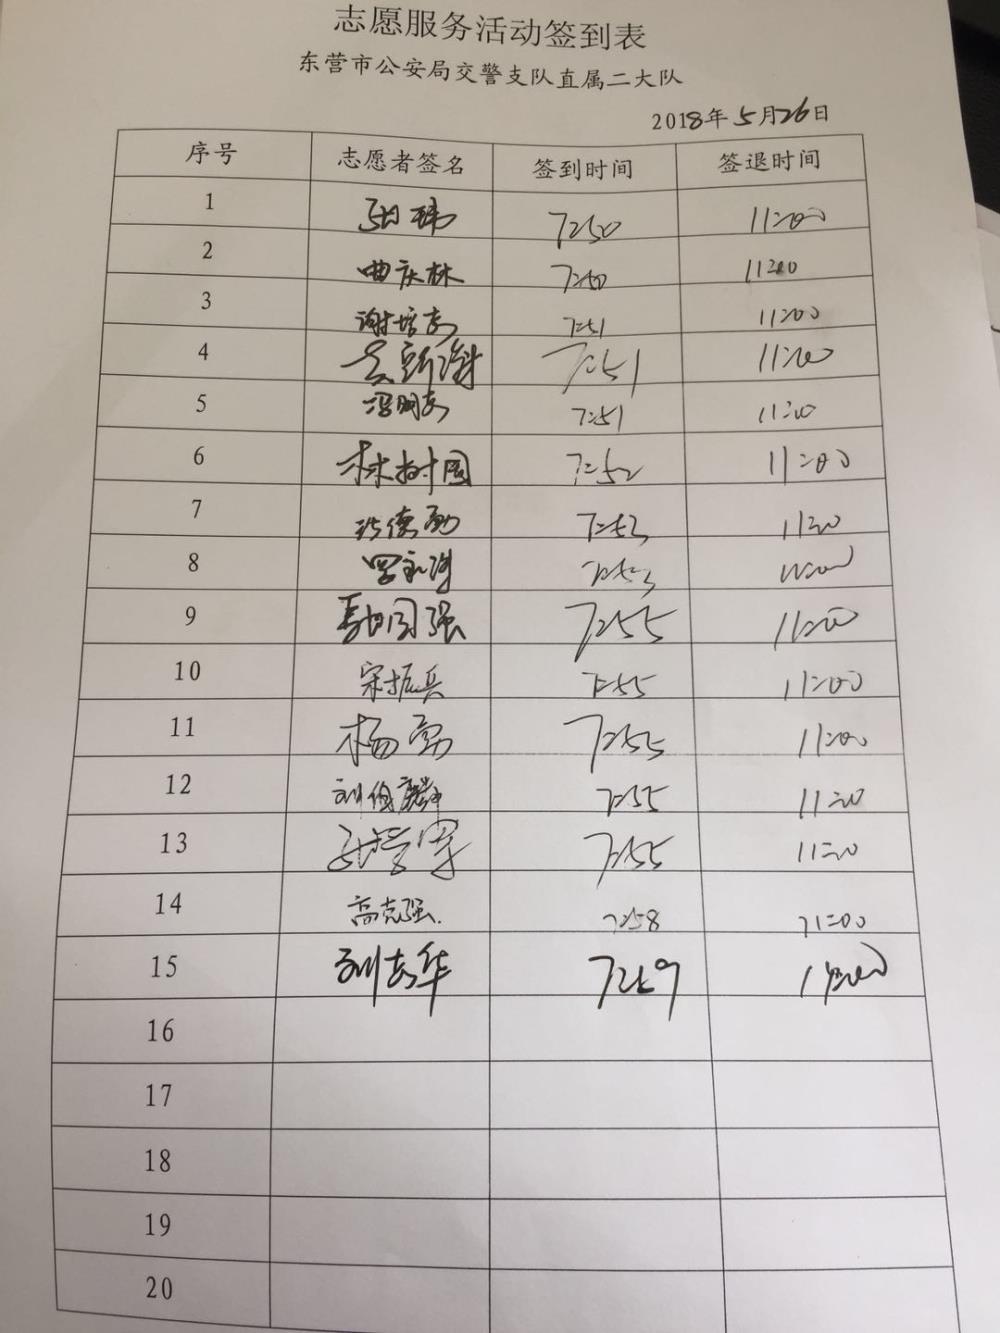 志愿服务活动签到表
东营市公安局交警支队直属二大队
2018年5月26日
序号 志愿者签名 签到时间 签退时间
1 7:50 11:00
2 曲庆林 7:50 11:00
3 谢培东 7:51 11:00
4 7:51 11:00
5 冯明东 7:51 11:00
6 林树国 7:52 11:00
7 德勇 7:53 11:00
8 7:53 11:00
9 国强 7:55 11:00
10 宋振兵 7:55 11:00
11 杨勇 7:55 11:00
12 刘 7:55 11:00
13 7:55 11:00
14 高克强 7:58 11:00
15 刘志华 7:59 11:00
16
17
18
19
20